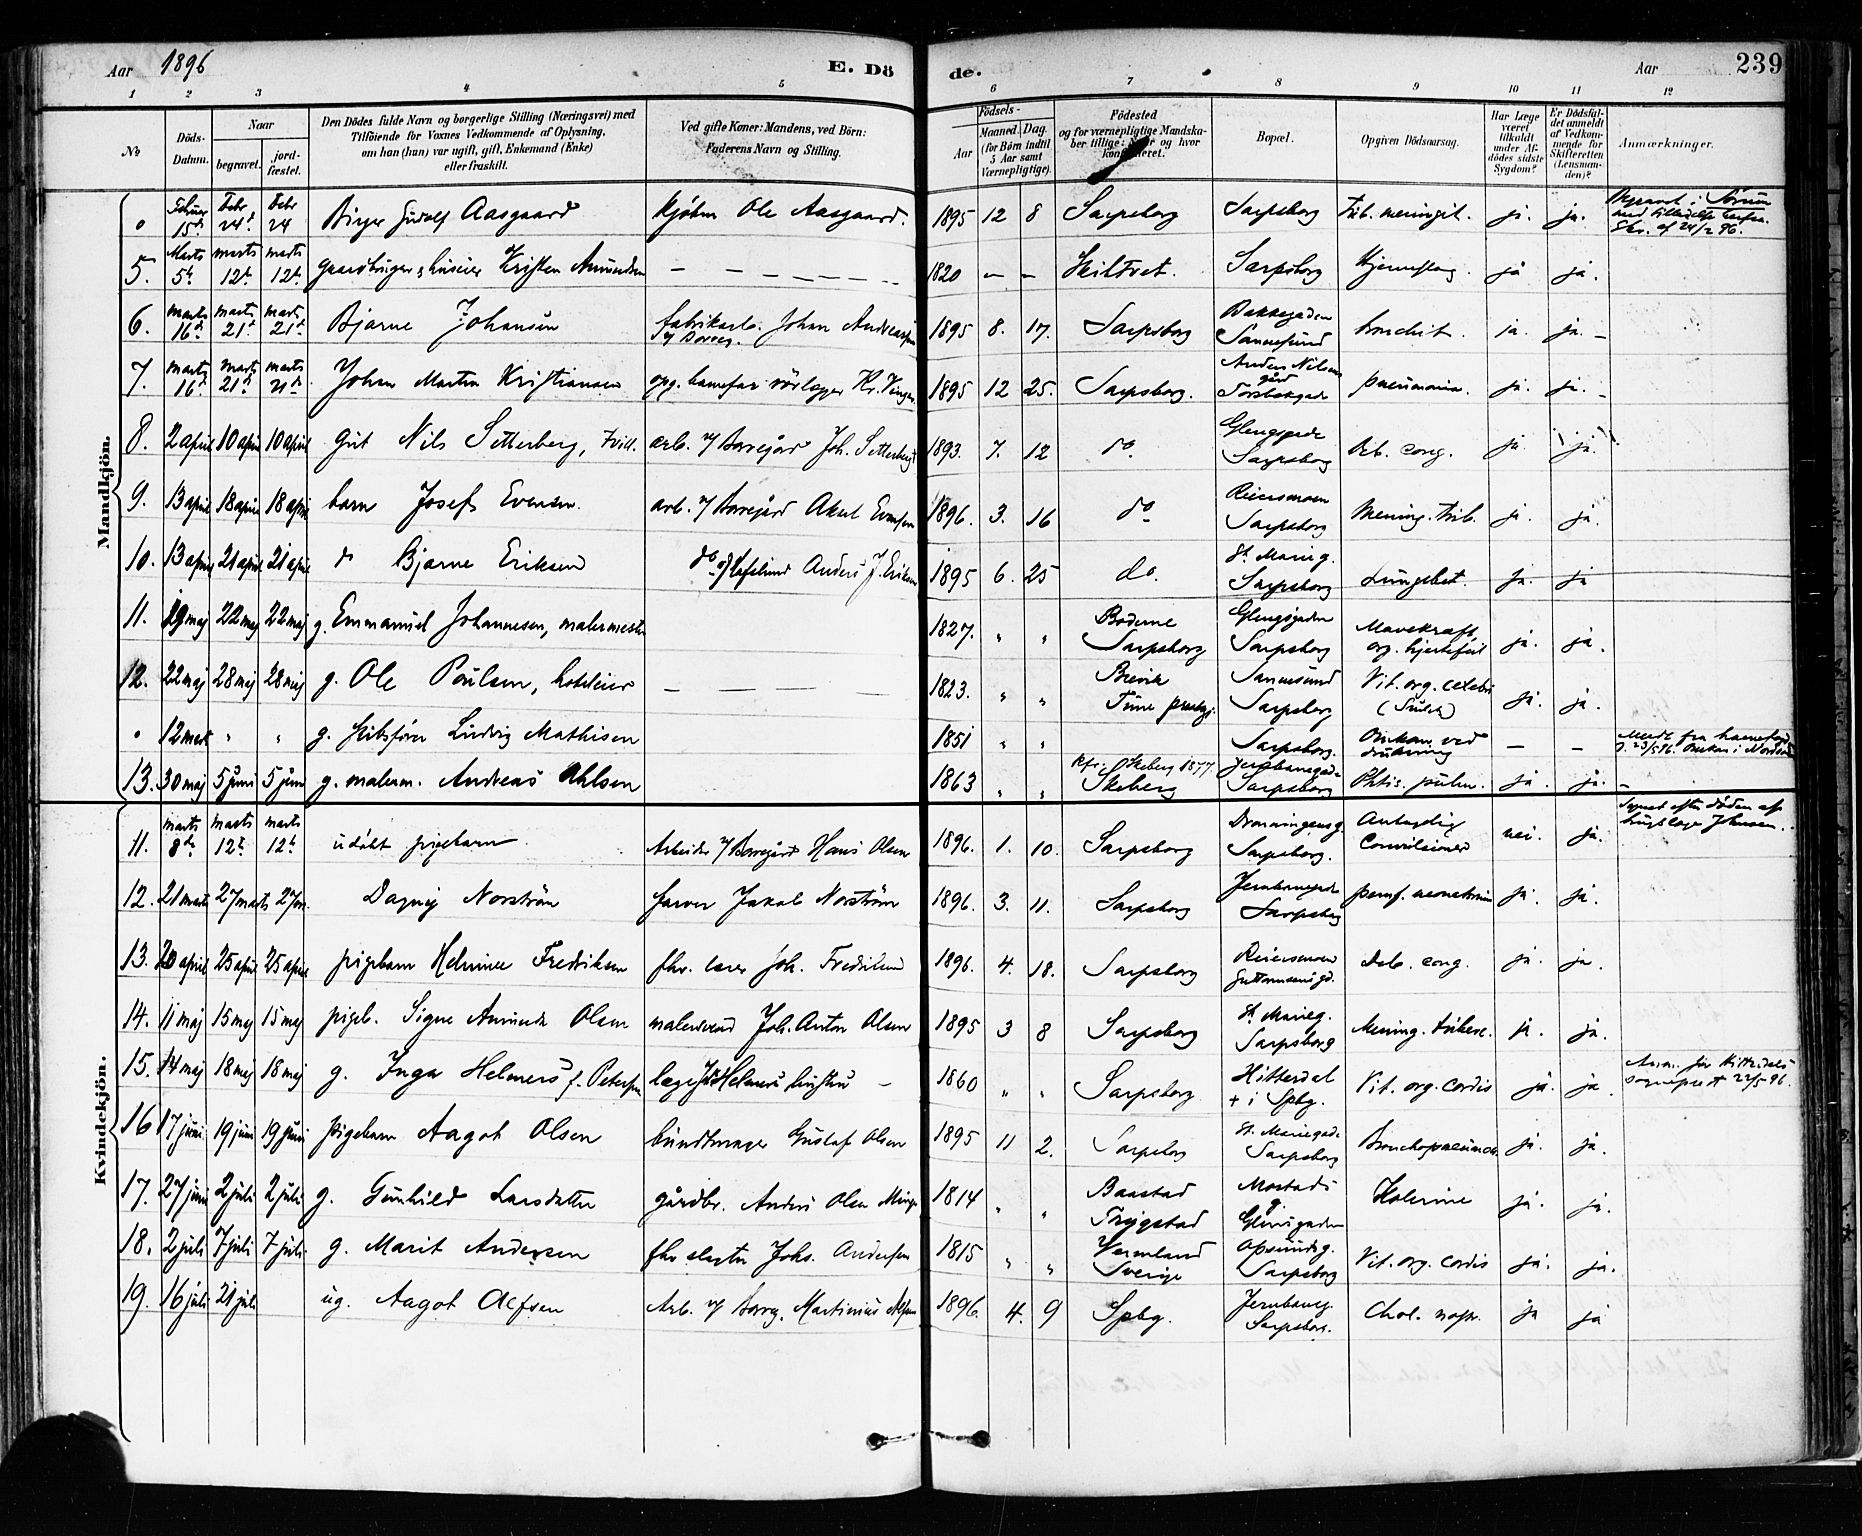 Aar 1896
E. Döde.
Aar 239
1 2 3 4 5 6 7 8 9 10 11 12
№
Döds-Datum.
Naar
begravet.
jord-fæstet.
Den Dödes fulde Navn og borgerlige Stilling (Næringsvei) med Tilföiende for Voxnes Vedkommende af Oplysning, om han (hun) var ugift, gift, Enkemand (Enke) eller fraskilt.
Ved gifte Koner: Mandens, ved Börn: Faderens Navn og Stilling.
Födsels-
Aar
Maaned. Dag.
(for Børn indtil 5 Aar samt Værnepligtige).
Födested
og for værnepligtige Mandskaber tillige: Naar og hvor konfirmeret.
Bopæl.
Opgiven Dödsaarsag.
Har Læge været tilkaldt under Afdödes sidste Sygdom?
Er Dödsfaldet anmeldt af Vedkommende for Skifteretten (Lensmanden)?
Anmærkninger.
Mandkjön.
0 Februar 15de Febr 24de Febr 24 Birger Gudolf Aasgaard kjøbm Ole Aasgaard. 1895 12 8 Sarpsborg Sarpsborg Tub. meningit. ja. ja. Begravet i Sørum med tilladelse herfra. Skr. af 24/2 96.
5. Marts 5te marts 12te marts 12te gaardbruger & huseier Kristen Amundsen — — — — — — 1820 — — Skiltvet. Sarpsborg Hjerneslag. ja ja.
6. marts 16de marts 21de marts 21de Bjarne Johansen fabrikarb. Johan Andreassen v/ Borreg. 1895 8. 17. Sarpsborg Bakkegaden Sannesund bronchit. ja. ja. —
7. marts 16de marts 21de marts 21de Johan Martin Kristiansen opg. barnefar rörlægger Kr. Vinger. 1895 12 25. Sarpsborg. Anders Nilsens gård Torsbækgade pneumonia. ja. ja. —
8. 2 april 10 april 10 april Gut Nils Setterberg, tvill. arb. v/ Borregård Joh. Setterberg 1893. 7. 12 do. Glengsgade Sarpsborg Deb. cong. ja. ja.
9. 13 april 18 april 18 april barn Josef Evensen. arb. v/ Borregård Aksel Evensen 1896. 3. 16 do Reiersmoen Sarpsborg Mening. tub. ja. ja.
10. 13 april 21 april 21 april do Bjarne Eriksen do. v/ Hafslund Anders J. Eriksen 1895 6. 25 do. St. Marieg. Sarpsborg Lungebet. ja. ja
11. 19 maj 22 maj 22 maj g. Emmanuel Johannesen, malermester 1827. " " Boderne Sarpsborg Glengsgaden Sarpsborg Mavekræft, org. hjertefeil ja. ja.
12. 22 maj 28 maj 28 maj g. Ole Paulsen, hoteleier — — — — — 1823. " " Brevik Tune prestgj. Sannesund Sarpsborg Vit. org. cerebri ja. ja.
0 12 marts " " g. skibsfører Ludvig Mathisen 1851 " " Sarpsborg. Omkom ved drukning — — Medt fra havnefogd. d. 23/5 96. Omkom i Nordsøen
13. 30 maj 5 juni 5 juni g. malerm. Andreas Ahlsen 1863 " " Kfr. Skeberg 1877. Skeberg Jernbanegade Sarpsborg Phtis. pulm. ja. ja. —
Kvindekjön.
11. marts 8de marts 12te marts 12te udöbt pigebarn Arbeider v/ Borregård Hans Olsen 1896. 1. 10. Sarpsborg Dronningensg. Sarpsborg. Antagelig Convulsioner nei. ja. Synet efter döden af Johnsen.
12. 21 marts 27 marts 27 m. Dagny Norström farver Jakob Norström 1896. 3. 11. Sarpsborg Jernbanegade Sarpsborg pemf. neonatorum ja. ja.
13. 20 april 25 april 25 april pigebarn Helmine Fredriksen fhv. lærer Joh. Fredriksen 1896. 4. 18. Sarpsborg Reiersmoen Guttormsensgd. Deb. cong. ja. ja.
14. 11 maj 15 maj 15 maj pigeb. Signe Amanda Olsen malersvend Joh. Anton Olsen 1895 3 8 Sarpsborg St. Marieg. Sarpsborg Mening. tuberc. ja. ja.
15. 14 maj 18 maj 18 maj g. Inga Helmers f. Petersen læge Helmers hustru — 1860 " " Sarpsborg Hitterdal + i Spbg. Vit. org. cordis ja. ja Anm. for Hitterdals sogneprest 22/5 96.
16 17 juni 19 juni 19 juni pigebarn Aagot Olsen bundtmager Gustaf Olsen 1895 11 2. Sarpsborg St. Mariegade Sarpsborg Bronchopneumon. ja. ja.
17. 27 juni 2 juli 2 juli g. Gunhild Larsdatter gårdbr. Anders Olsen Minge 1814 " " Baastad Trygstad Mostads g. Glengsgaden Kolerine ja. ja.
18. 2 juli 7 juli 7 juli g. Marit Andersen fhv slagter Johs. Andersen 1815 " " Vermland Sverige Opsundsg. Sarpsborg Vit. org. cordis ja. ja.
19. 16 juli 21 juli ug. Aagot Alfsen Arb. v/ Borreg. Martinius Alfsen 1896. 4. 9 Spbg. Jernbaneg. Sarpsborg. Chol. nostr. ja ja